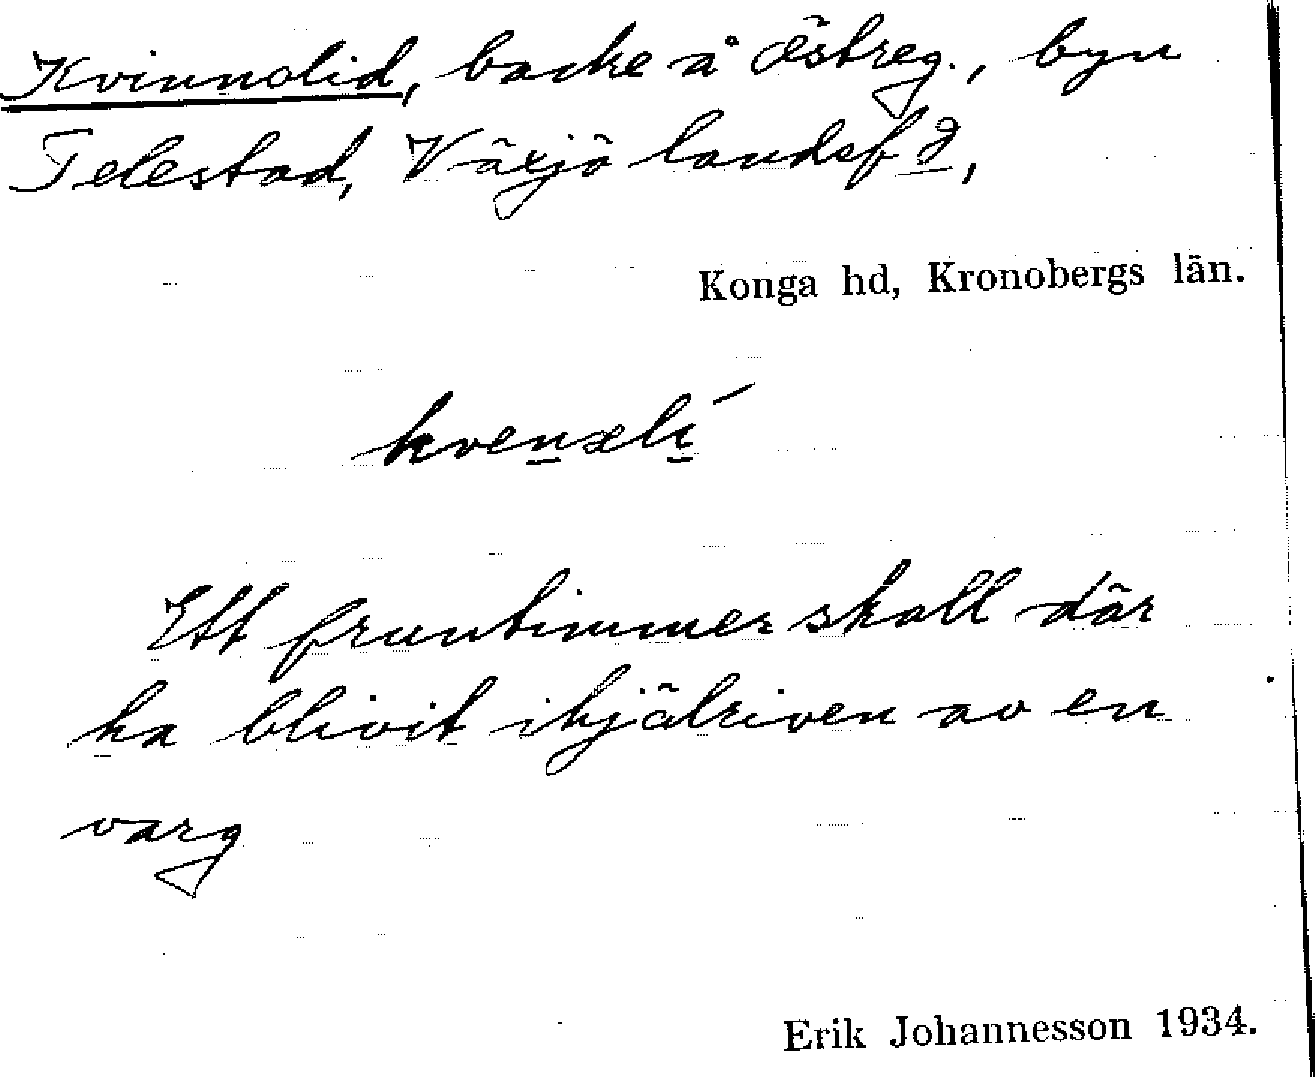 Kvinnolid, backe å Östreg., byn
Telestad, Växjö landsf g,
Konga hd, Kronobergs län.
kvenəlí
Ett fruntimmer skall där
ha blivit ihjälriven av en
varg
Erik Johannesson 1934.